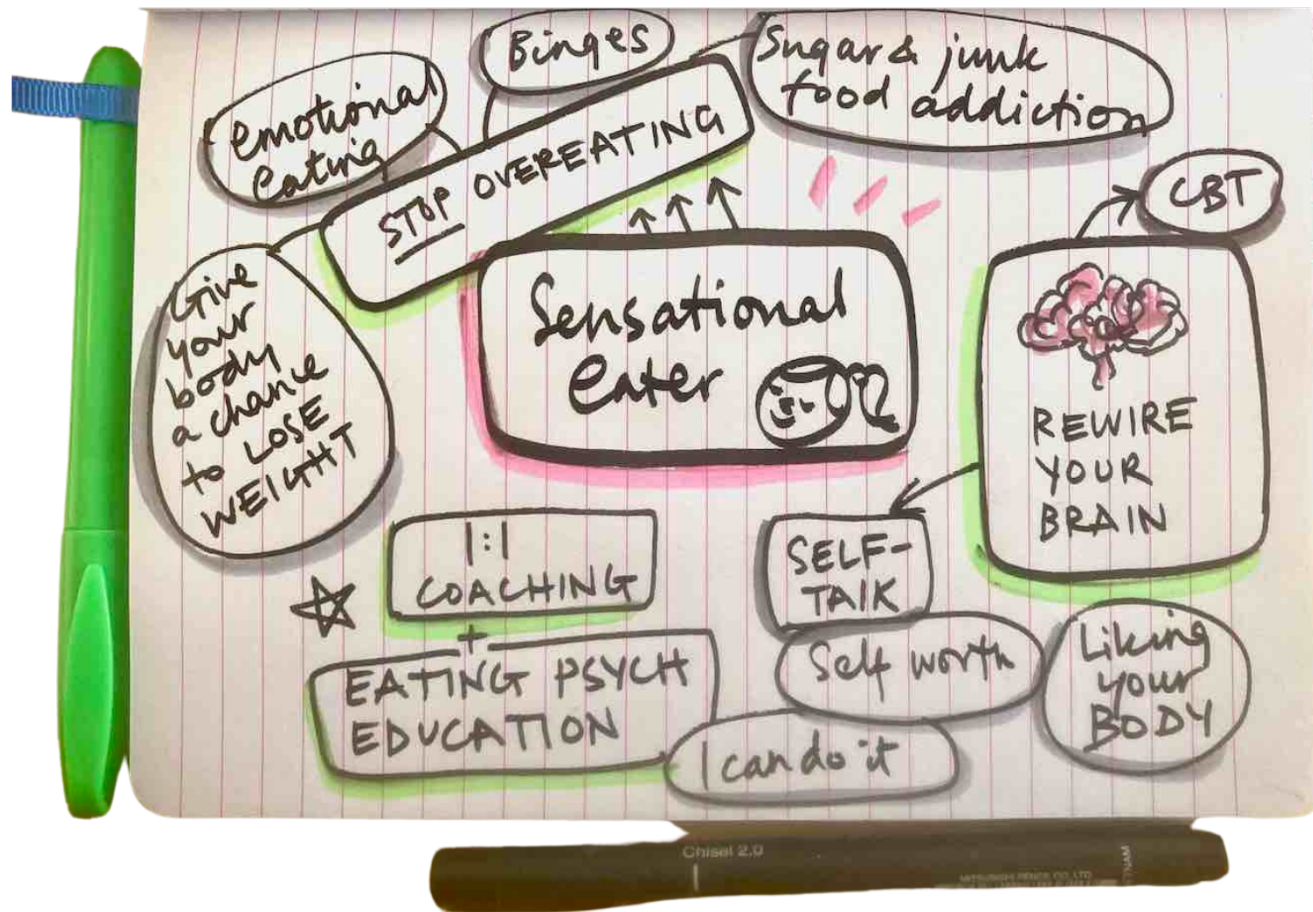 Binges
Sugar & junk
food addiction
emotional
eating
STOP OVEREATING
CBT
Give
your
body
a chance
to LOSE
WEIGHT
Sensational
Eater
REWIRE
YOUR
BRAIN
1:1
COACHING
+
EATING PSYCH
EDUCATION
SELF-
TALK
Self worth
I can do it
Liking
your
BODY
Chisel 2.0
MITSUBISHI PENCIL CO., LTD